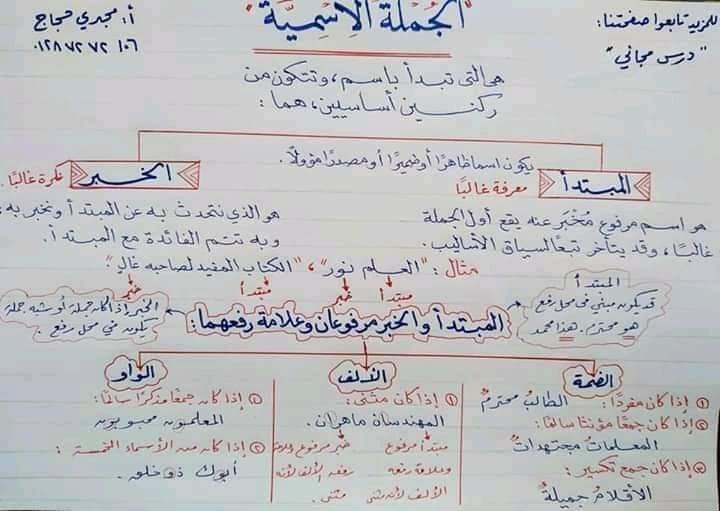 "الجُملة الاِسميَّة"
أ: مجدي حجاج
٠١٢٨٧٢٧٢١٠٦
للمزيد تابعوا صفحتنا:
"درس مجاني"
هي التي تبدأ باسم، وتتكون من
ركنين أساسيين، هما:
يكون اسمًا ظاهرًا أو ضميرًا أو مصدرًا مؤولًا.
المبتدأ
معرفة غالبًا
هو اسم مرفوع مُخْبَر عنه يقع أول الجملة
غالبًا، وقد يتأخر تبعًا لسياق الأساليب.
الخبر
نكرة غالبًا.
هو الذي نتحدث به عن المبتدأ ونخبر به،
وبه تتم الفائدة مع المبتدأ.
مثال: "العلم نور"، "الكتاب المفيد لصاحبه غالٍ".
مبتدأ خبر مبتدأ خبر
المبتدأ
قد يكون مبني في محل رفع
هو محترم. هذا محمد
المبتدأ والخبر مرفوعان وعلامة رفعهما:
الخبر إذا كان جملة أو شبه جملة
يكون في محل رفع
الضمة
① إذا كان مفردًا: الطالبُ محترمٌ
② إذا كان جمعًا مؤنثًا سالمًا:
المعلماتُ مجتهداتٌ
③ إذا كان جمع تكسير:
الأقلامُ جميلةٌ
الألف
① إذا كان مثنى:
المهندسان ماهران.
مبتدأ مرفوع
وعلامة رفعه
الألف لأنه مثنى
خبر مرفوع وعلامة
رفعه الألف لأنه
مثنى.
الواو
① إذا كان جمعًا مذكرًا سالمًا:
المعلمون محبوبون
② إذا كان من الأسماء الخمسة:
أبوك ذو خلق.